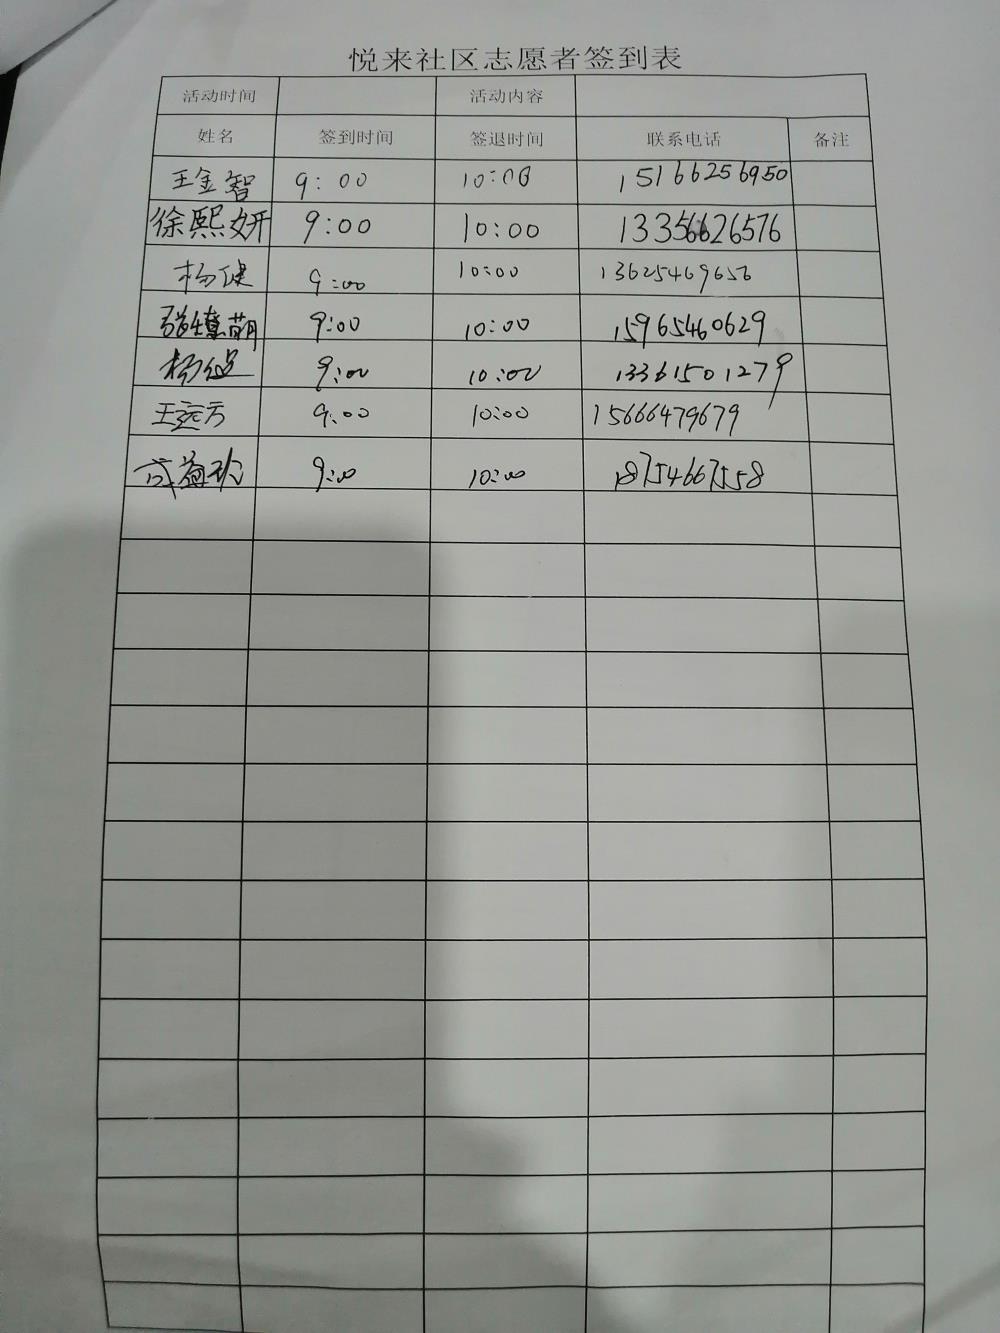 悦来社区志愿者签到表
活动时间 活动内容
姓名 签到时间 签退时间 联系电话 备注
王金智 9:00 10:00 15166256950
徐熙妍 9:00 10:00 13356626576
杨健 9:00 10:00 13625469656
萌 9:00 10:00 15965460629
杨 9:00 10:00 13361501279
王远方 9:00 10:00 15666479679
成益 9:00 10:00 18754667558